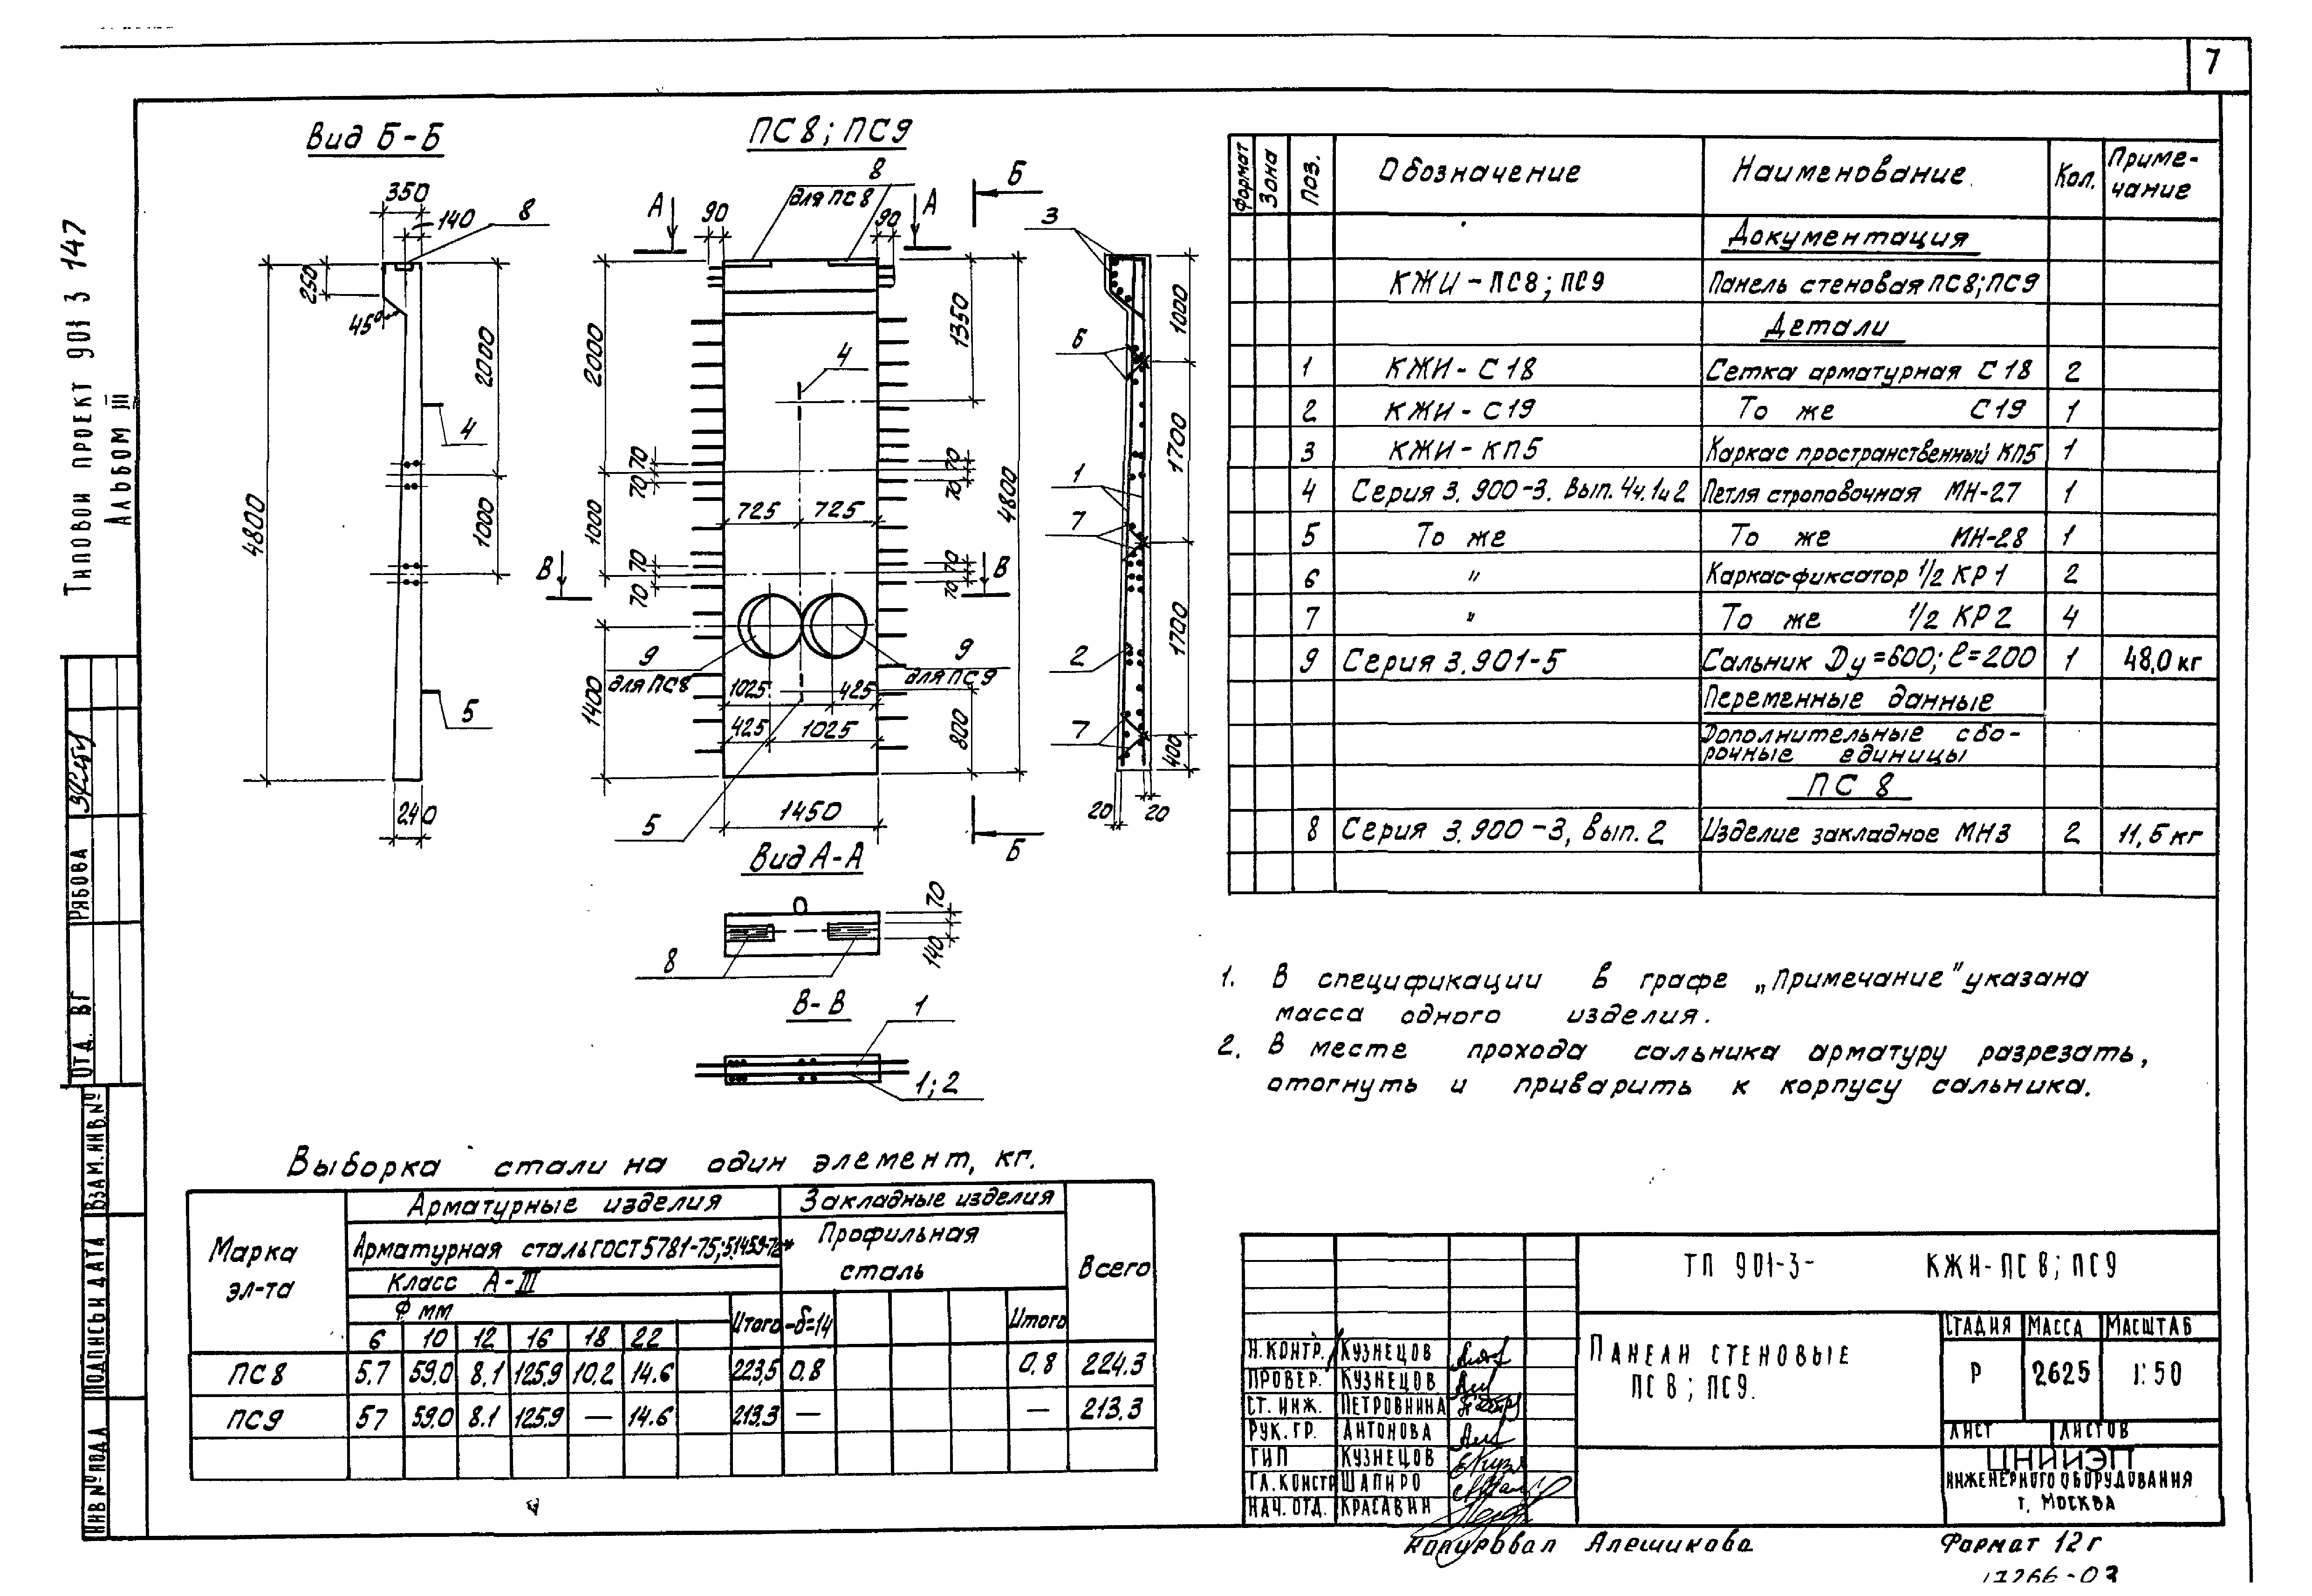 7
Типовой проект 901 3 147
Альбом III
Вид Б-Б
350
140
8
250
45°
2000
4
4800
1000
5
240
ПС8; ПС9
8
для ПС8
А
А
Б
90
90
2000
1350
4
70
70
70
70
725
725
1000
4800
70
70
70
70
В
В
9
для ПС8
9
для ПС9
1025
425
425
1025
1400
800
5
1450
Б
3
1000
6
1700
1
7
1700
2
7
400
20
20
Вид А-А
70
140
8
В-В
1
1;2
Формат
Зона
Поз.
Обозначение
Наименование
Кол.
Приме-
чание
Документация
КЖИ-ПС8; ПС9 Панель стеновая ПС8; ПС9
Детали
1 КЖИ-С18 Сетка арматурная С18 2
2 КЖИ-С19 То же С19 1
3 КЖИ-КП5 Каркас пространственный КП5 1
4 Серия 3.900-3. Вып. 4ч.1и2 Петля строповочная МН-27 1
5 То же То же МН-28 1
6 " Каркас-фиксатор 1/2 КР1 2
7 " То же 1/2 КР2 4
9 Серия 3.901-5 Сальник Ду=600; ℓ=200 1 48,0 кг
Переменные данные
Дополнительные сбо-
рочные единицы
ПС 8
8 Серия 3.900-3, вып. 2 Изделие закладное МН3 2 11,5 кг
1. В спецификации в графе „Примечание" указана
масса одного изделия.
2. В месте прохода сальника арматуру разрезать,
отогнуть и приварить к корпусу сальника.
Выборка стали на один элемент, кг.
Марка
эл-та
Арматурные изделия
Закладные изделия
Всего
Арматурная сталь ГОСТ 5781-75; 5.1459-72*
Профильная
сталь
Класс А-III
Ф мм
Итого
-δ=14
Итого
6 10 12 16 18 22
ПС8 5.7 59.0 8.1 125.9 10.2 14.6 223,5 0.8 0.8 224.3
ПС9 57 59.0 8.1 125.9 — 14.6 213.3 — — 213.3
ТП 901-3- КЖИ-ПС8; ПС9
Панели стеновые
ПС8; ПС9.
Стадия Масса Масштаб
Р 2625 1:50
Лист Листов
ЦНИИЭП
инженерного оборудования
г. Москва
Н.контр. Кузнецов
Провер. Кузнецов
Ст. инж. Петровнина
Рук. гр. Антонова
ГИП Кузнецов
Гл. констр Шапиро
Нач. отд. Красавин
Копировал Алешикова
Формат 12г
17266-03
Рябова
Отд. ВГ
Взам. инв. №
Подпись и дата
Инв № подл